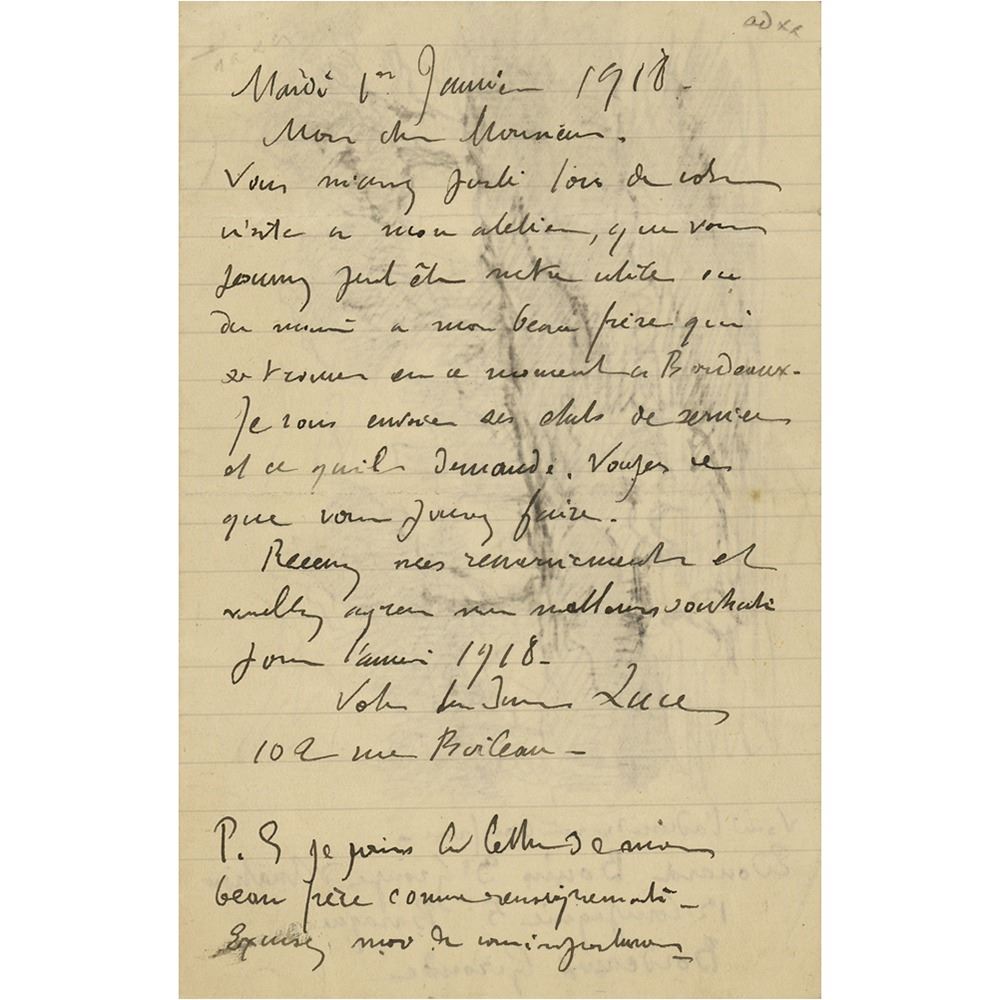 Mardi 1er Janvier 1918.
Mon cher Monsieur.
Vous m'avez parlé lors de votre
visite a mon atelier, que vous
pouvez peut être utile ou
du moins a mon beau frère qui
se trouve en ce moment a Bordeaux.
Je vous envoie ses etats de service
et ce qu'il demande. Voyez ce
que vous pouvez faire.
Recevez mes remerciements et
veuillez agreer mes meilleurs souhaits
pour l'année 1918.
Votre Luce
102 rue Boileau
P. S je joins la lettre de mon
beau frère comme renseignements
Excusez moi de